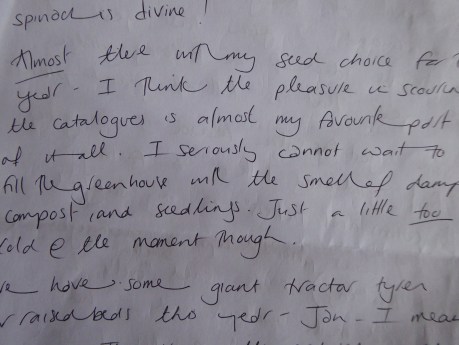 spinach is divine!
Almost there with my seed choice for
year - I think the pleasure in scourin
the catalogues is almost my favourite part
of it all. I seriously cannot wait to
fill the greenhouse with the smell of damp
compost, and seedlings. Just a little too
cold @ the moment though.
have some giant tractor tyres
raised beds this year - Jan - I mea